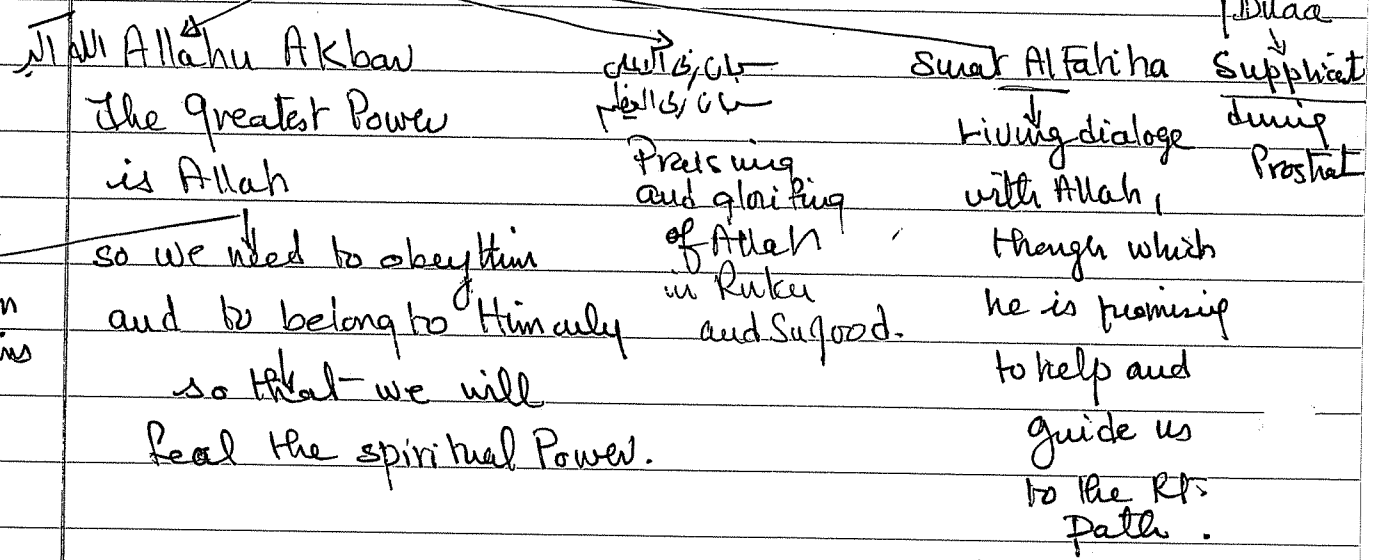 الله اكبر Allahu Akbar
The greatest Power
is Allah
so we need to obey Him
and to belong to Him only
so that we will
feal the spiritual Power.
سبحان ربى
سبحان ربى العظيم
Praising
and glorifing
of Allah
in Ruku
and Sujood.
Surat Al Fatiha
Living dialoge
with Allah,
though which
he is promising
to help and
guide us
to the Rt.
Path.
Duaa
Supplicat
during
Prostrat
n
ins